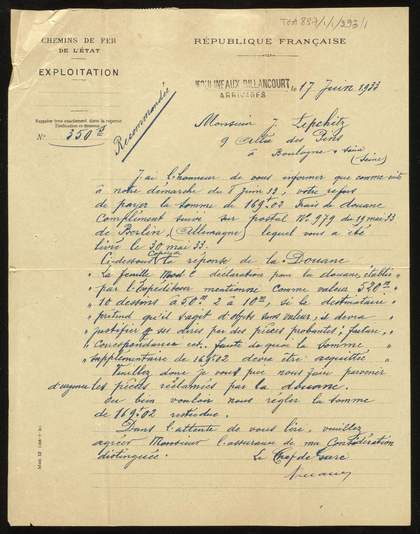 TGA 897/1/1/293/1
CHEMINS DE FER
DE L'ÉTAT
EXPLOITATION
RÉPUBLIQUE FRANÇAISE
MOULINEAUX BILLANCOURT
ARRIVAGES
le 17 Juin 1933
Rappeler très exactement dans la réponse
l'indication ci-dessous
N° 350
Recommandée
Monsieur J. Lipchitz
9 Allée des Pins
à Boulogne s/ Seine
(Seine)
J'ai l'honneur de vous informer que comme suite
à notre démarche du 8 Juin 33, votre refus
de payer la somme de 169f02 frais de douane
Complément suivi sur postal N° 979 du 19 mai 33
de Berlin (Allemagne) lequel vous a été
livré le 30 mai 33.
Ci-dessous Copie de la réponse de la Douane
" La feuille Mod C déclaration pour la douane, établie "
" par l'Expéditeur mentionne comme valeur 520 "
" 10 dessins à 50 2 à 10, si le destinataire "
" prétend qu'il s'agit d'objets sans valeur, il devra "
" justifier ses dires par des pièces probantes; facture, "
" correspondance etc. faute de quoi la somme "
" supplémentaire de 169f02 devra être acquittée "
Veuillez donc je vous prie nous faire parvenir
d'urgence les pièces réclamées par la douane.
Ou bien vouloir nous régler la somme
de 169f02 restée due.
Dans l'attente de vous lire, veuillez
agréer Monsieur l'assurance de ma Considération
distinguée.
Le Chef de gare